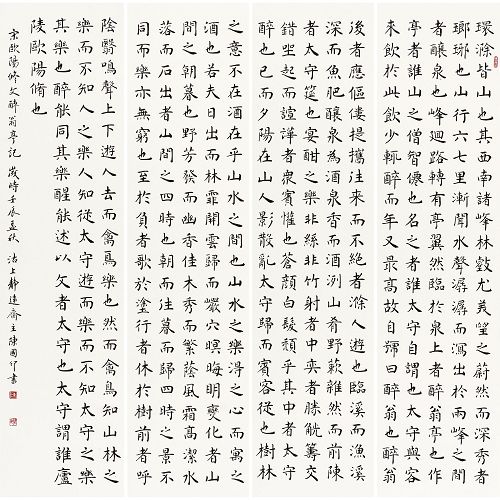 環滁皆山也其西南諸峰林壑尤美望之蔚然而深秀者
瑯琊也山行六七里漸聞水聲潺潺而瀉出於兩峰之間
者釀泉也峰迴路轉有亭翼然臨於泉上者醉翁亭也作
亭者誰山之僧智僊也名之者誰太守自謂也太守與客
來飲於此飲少輒醉而年又最高故自號曰醉翁也醉翁
後者應傴僂提攜往來而不絕者滁人遊也臨溪而漁溪
深而魚肥釀泉為酒泉香而酒洌山肴野蔌雜然而前陳
者太守筵也宴酣之樂非絲非竹射者中奕者勝觥籌交
錯坐起而諠譁者衆賓懽也蒼顏白髮頹乎其中者太守
醉也已而夕陽在山人影散亂太守歸而賓客從也樹林
之意不在酒在乎山水之間也山水之樂得之心而寓之
酒也若夫日出而林霏開雲歸而巖穴暝晦明變化者山
間之朝暮也野芳發而幽香佳木秀而繁蔭風霜高潔水
落而石出者山間之四時也朝而往暮而歸四時之景不
同而樂亦無窮也至於負者歌於塗行者休於樹前者呼
陰翳鳴聲上下遊人去而禽鳥樂也然而禽鳥知山林之
樂而不知人之樂人知從太守遊而樂而不知太守之樂
其樂也醉能同其樂醒能述以文者太守也太守謂誰廬
陵歐陽脩也
宋歐陽修文醉翁亭記 歲時壬辰孟秋 沽上靜遠齋主陳國書